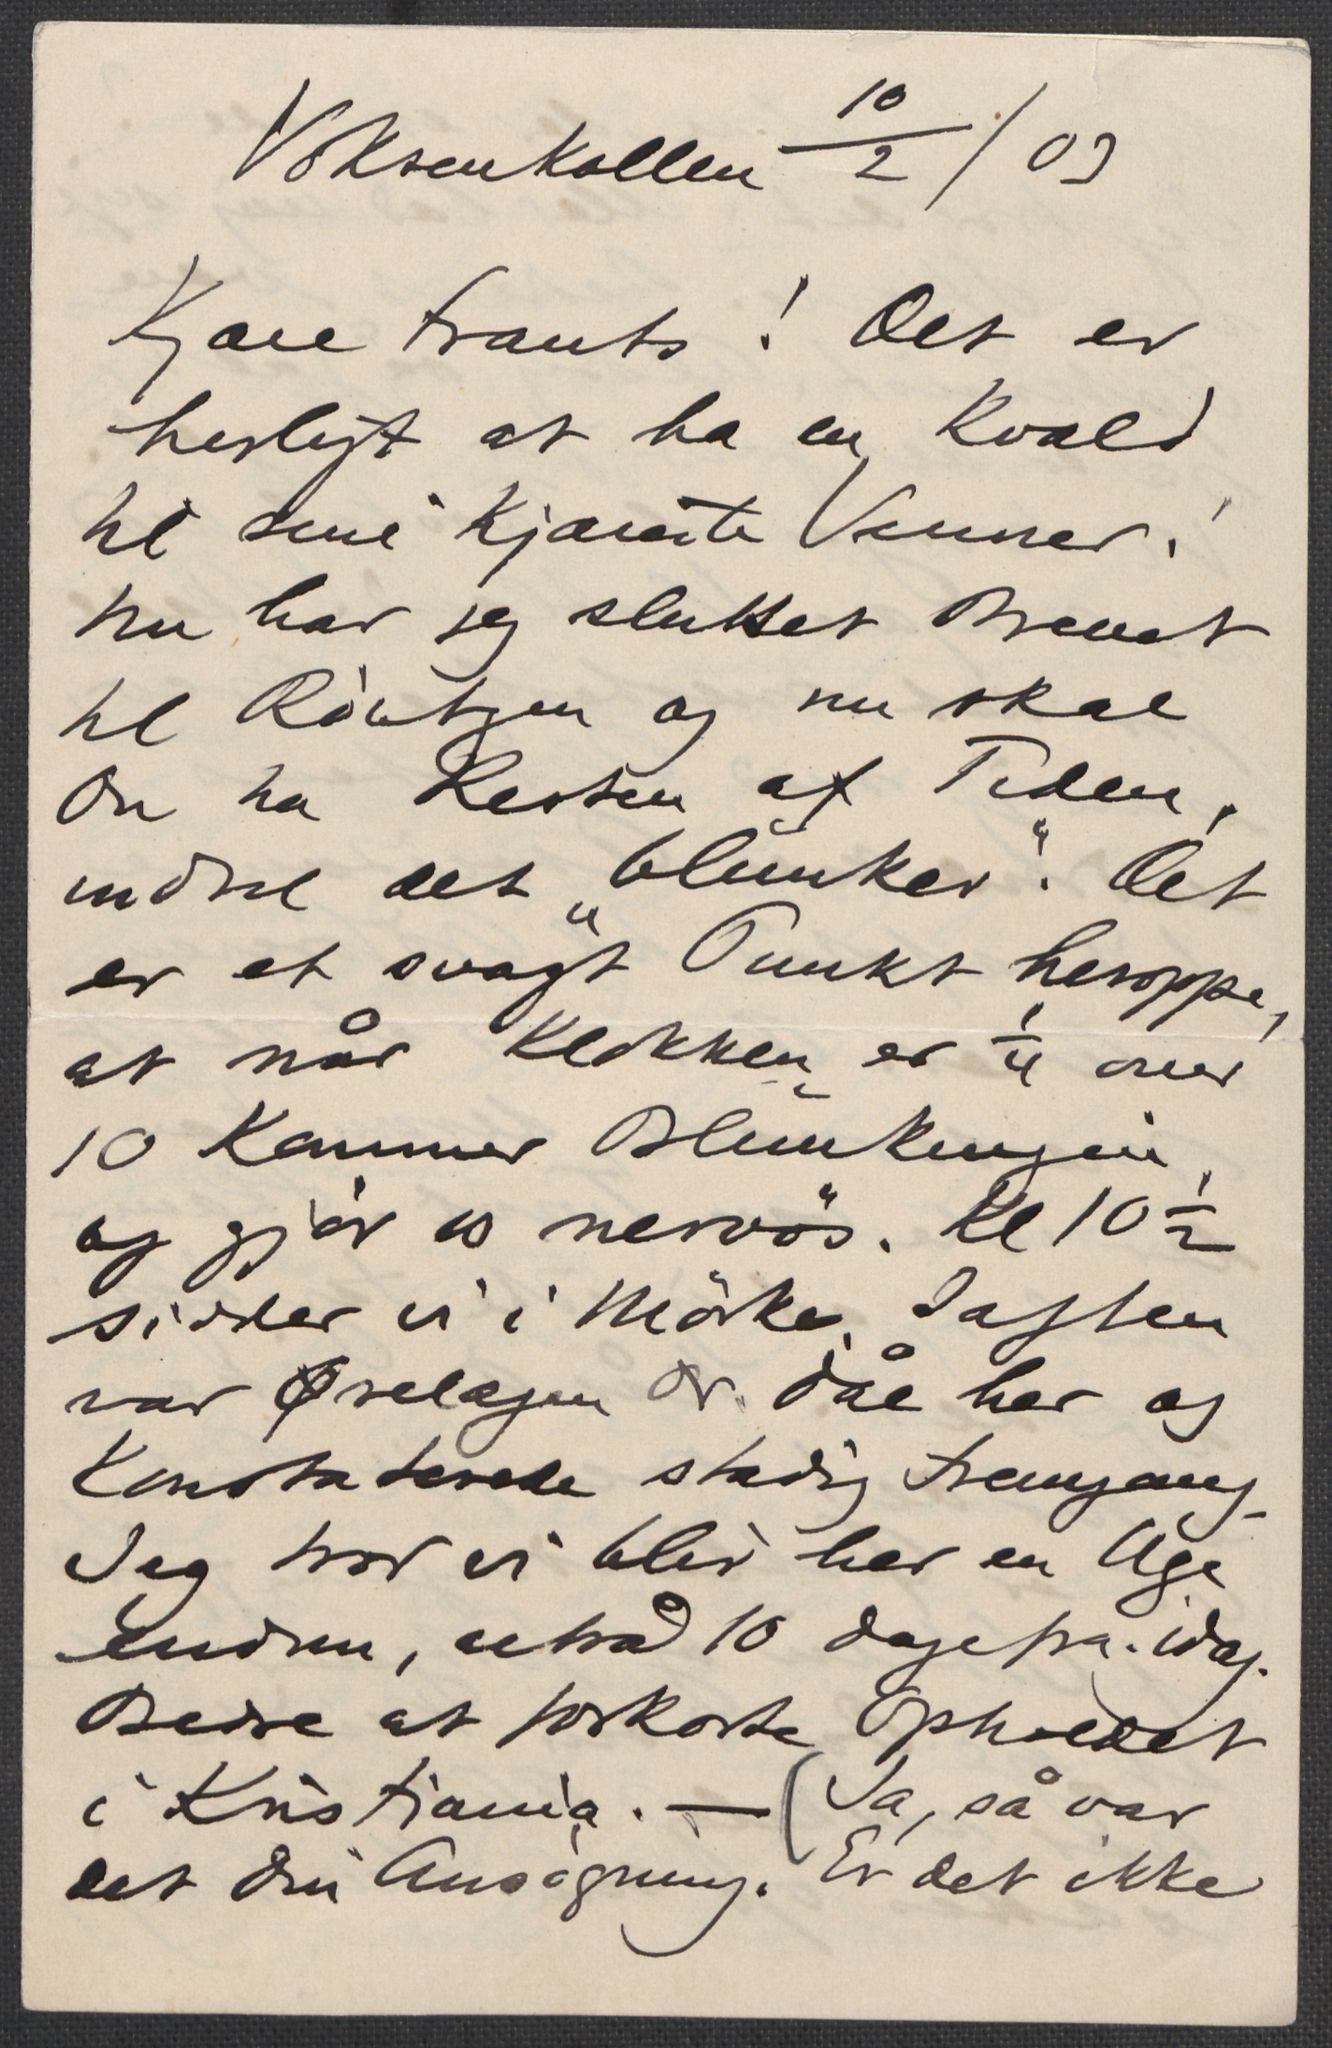 Voksenkollen 10/2/03
Kjære Frants! Det er
herligt at ha en Kvæld
til sine kjæreste Venner!
Nu har jeg sluttet Brevet
til Röntgen og nu skal
Du ha Resten af Tiden,
indtil det „blunker“. Det
er et svagt Punkt heroppe,
at når Klokken er 1/4 over
10 kommer Blunkingen
og gjör os nervös. Kl 10 1/2
sidder vi i Mörke. Iaften
var Ørelægen Dr. Dåe her og
Konstaterede stadig Fremgang.
Jeg tror vi blir her en Uge
endnu, altså 10 dage fra idag.
Bedre at forkorte Opholdet
i Kristiania. — (Ja, så var
det din Ansögning. Er det ikke